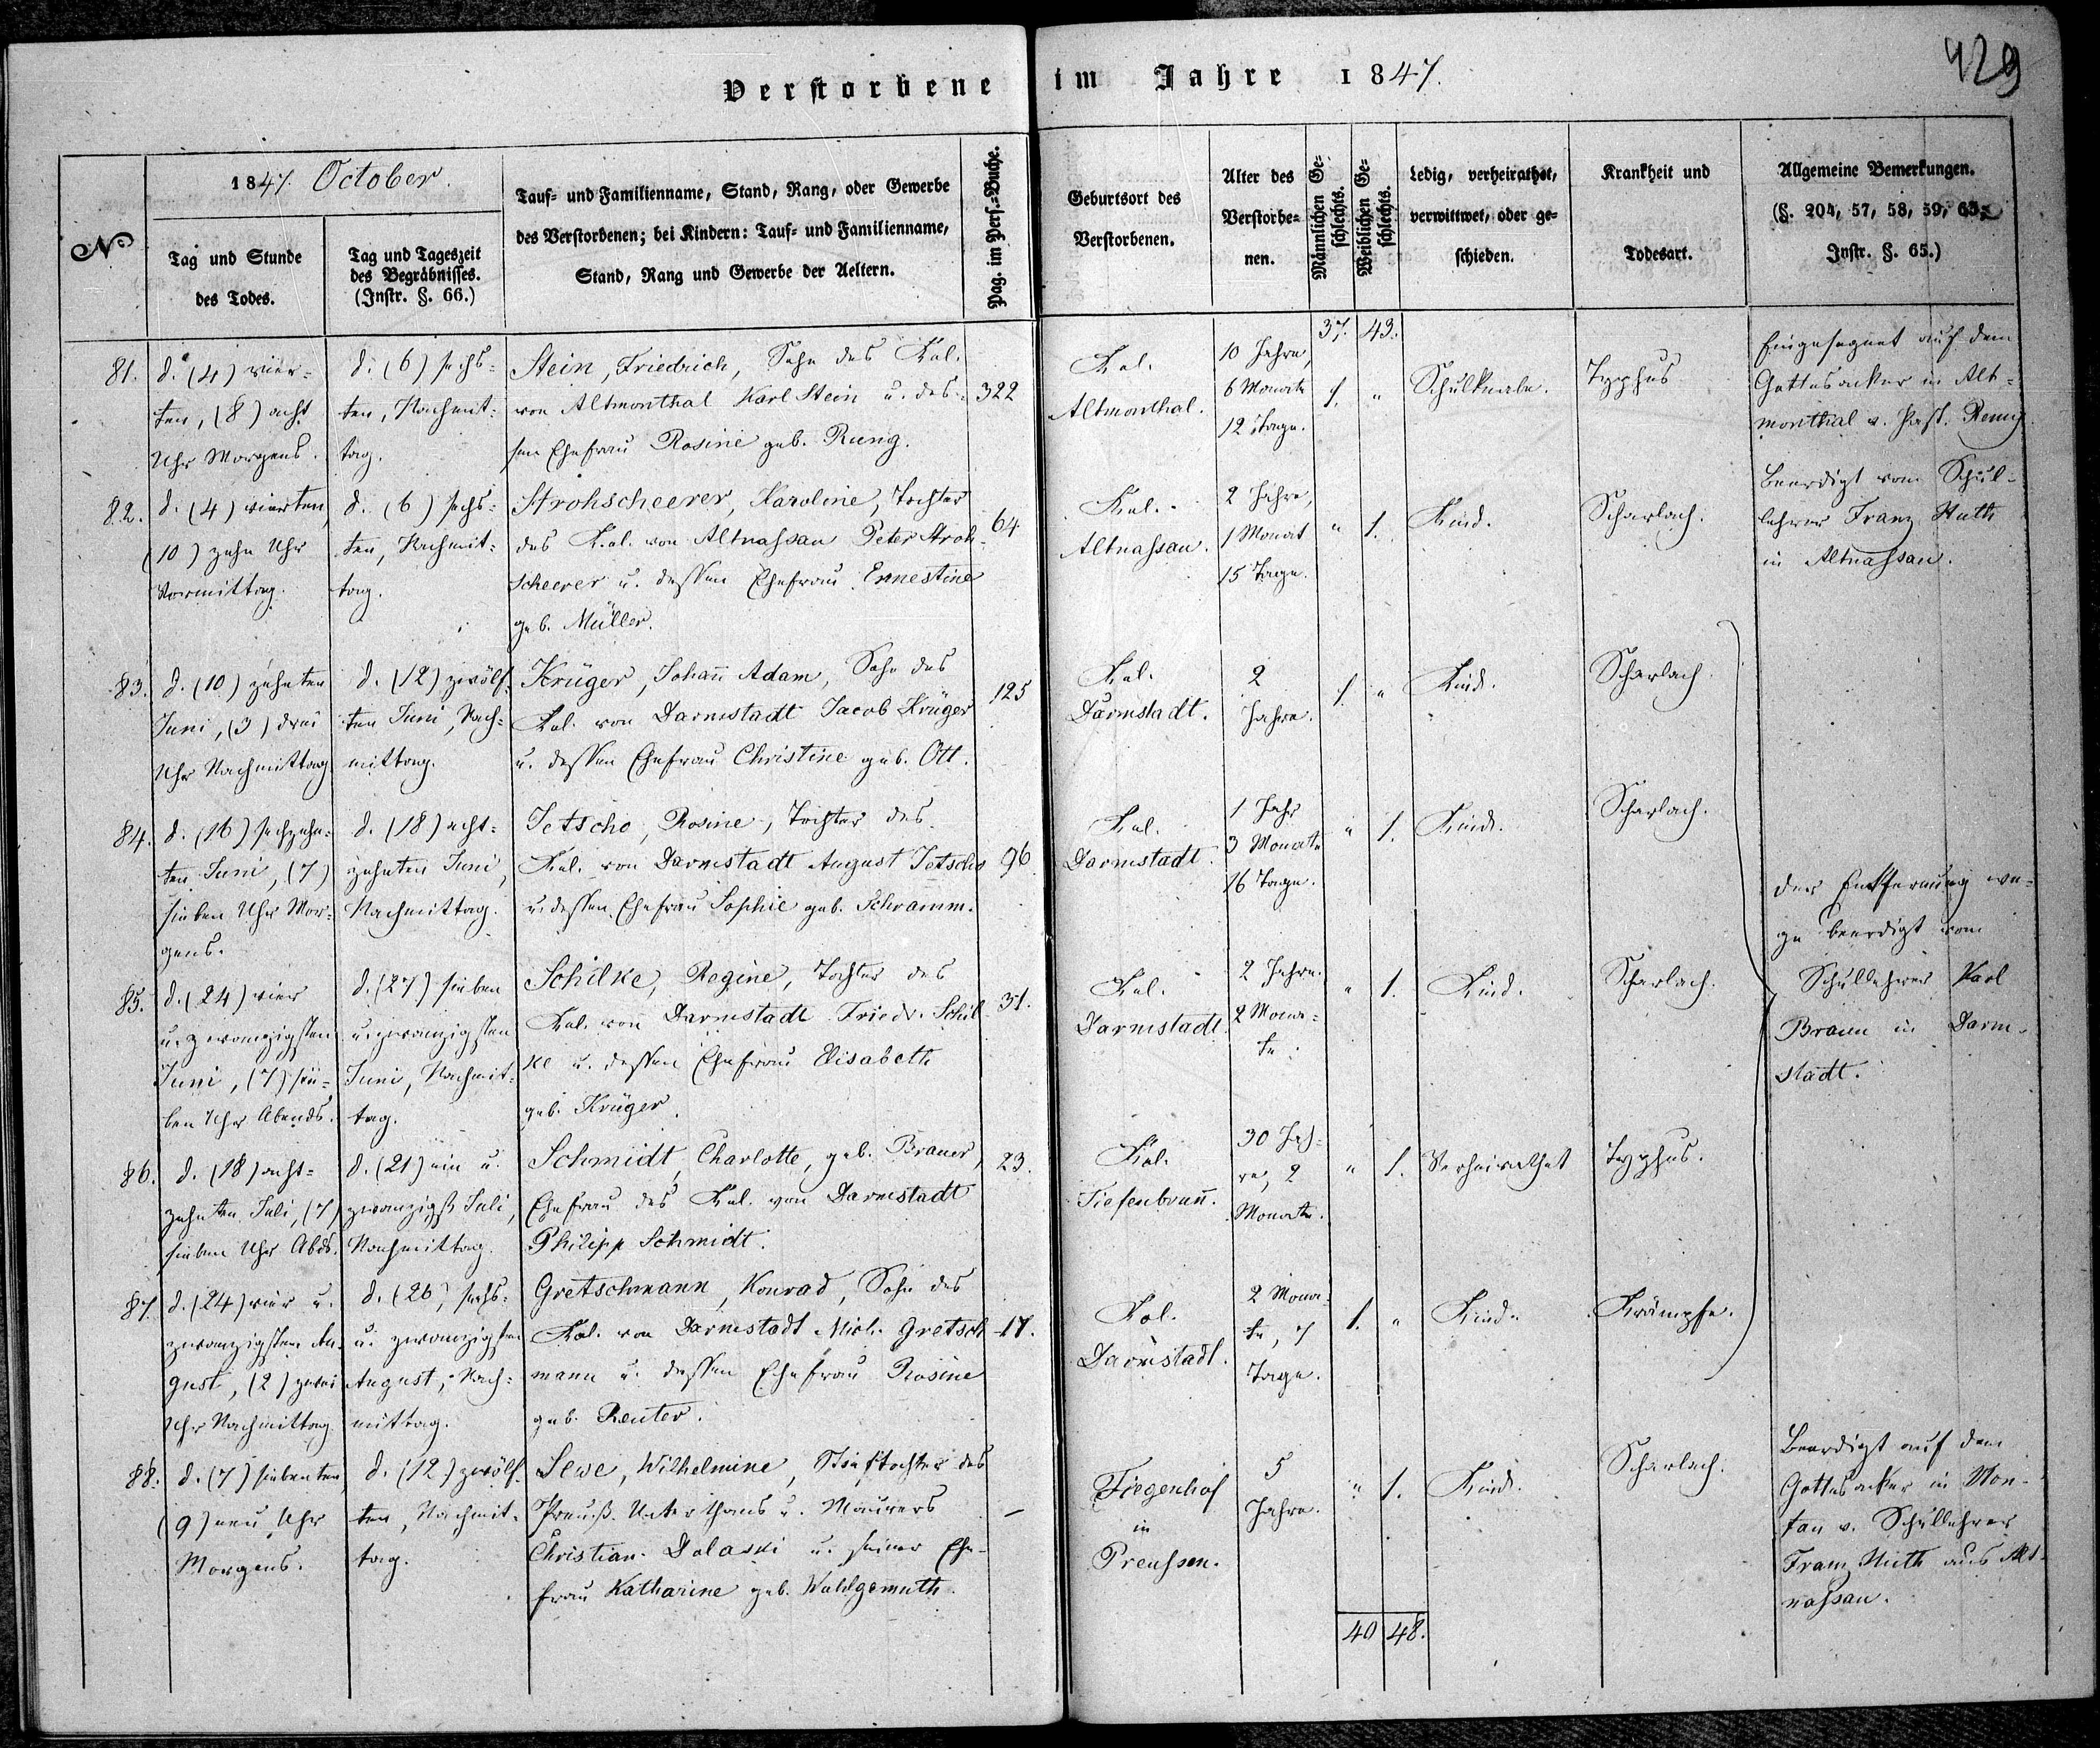 429
Verstorbene im Jahre 1847.
No
1847. October.
Tag und Stunde
des Todes.
Tag und Tageszeit
des Begräbnisses.
(Instr. §. 66.)
Tauf- und Familienname, Stand, Rang, oder Gewerbe
des Verstorbenen; bei Kindern: Tauf- und Familienname,
Stand, Rang und Gewerbe der Aeltern.
Pag. im Pers.-Buche.
Geburtsort des
Verstorbenen.
Alter des
Verstorbe-
nen.
Männlichen Ge-
schlechts.
Weiblichen Ge-
schlechts.
Ledig, verheirathet,
verwittwet, oder ge-
schieden.
Krankheit und
Todesart.
Allgemeine Bemerkungen.
(§. 204, 57, 58, 59,
Instr. §. 65.)
37. 43.
81.
d. (4) vier-
ten, (8) acht
Uhr Morgens.
d. (6) sechs-
ten, Nachmit-
tag.
Stein, Friedrich, Sohn des Kol.
von Altmonthal Karl Stein u. des-
sen Ehefrau Rosine geb. Rung.
322
Kol.
Altmonthal.
10 Jahre,
6 Monate
12 Tage.
1. "
Schulknabe.
Typhus
Eingesegnet auf dem
Gottesacker in Alt-
monthal v. Past.
82.
d. (4) vierten,
(10) zehn Uhr
Vormittag.
d. (6) sechs-
ten, Nachmit-
tag.
Strohscheerer, Karoline, Tochter
des Kol. von Altnassau Peter Stroh-
scheerer u. dessen Ehefrau Ernestine
geb. Müller.
64
Kol.
Altnassau.
2 Jahre,
1 Monat
15 Tage.
" 1.
Kind.
Scharlach.
Beerdigt vom Schul-
lehrer Franz Huth
in Altnassau.
83.
d. (10) zehnten
Juni, (3) drei
Uhr Nachmittag.
d. (12) zwölf-
ten Juni, Nach-
mittag.
Krüger, Johann Adam, Sohn des
Kol. von Darmstadt Jacob Krüger
u. dessen Ehefrau Christine geb. Ott.
125
Kol.
Darmstadt.
2
Jahre.
1. "
Kind.
Scharlach.
84.
d. (16) sechzehn-
ten Juni, (7)
sieben Uhr Mor-
gens.
d. (18) acht-
zehnten Juni,
Nachmittag.
Jetscho, Rosine, Tochter des
Kol. von Darmstadt August Jetscho
u. dessen Ehefrau Sophie geb. Schramm.
96.
Kol.
Darmstadt.
1 Jahr
3 Monate
16 Tage.
" 1.
Kind.
Scharlach.
der Entfernung we-
gen beerdigt vom
Schullehrer Karl
Braun in Darm-
stadt.
85.
d. (24) vier
u. zwanzigsten
Juni, (7) sie-
ben Uhr Abends.
d. (27) sieben
u. zwanzigsten
Juni, Nachmit-
tag.
Schilke, Regine, Tochter des
Kol. von Darmstadt Friedr. Schil-
ke u. dessen Ehefrau Elisabeth
geb. Krüger.
31.
Kol.
Darmstadt.
2 Jahre
2 Mona-
te.
" 1.
Kind.
Scharlach.
86.
d. (18) acht-
zehnten Juli, (7)
sieben Uhr Abds.
d. (21) ein u.
zwanzigst Juli,
Nachmittag.
Schmidt, Charlotte, geb. Brauer,
Ehefrau des Kol. von Darmstadt
Philipp Schmidt.
23.
Kol.
Tiefenbrunn.
30 Jah-
re, 2
Monate.
" 1.
Verheirathet
Typhus.
87.
d. (24) vier u.
zwanzigsten Au-
gust, (2) zwei
Uhr Nachmittag.
d. (26) sechs-
u. zwanzigsten
August, Nach-
mittag.
Gretschmann, Konrad, Sohn des
Kol. von Darmstadt Mich. Gretsch-
mann u. dessen Ehefrau Rosine
geb. Reuter.
17.
Kol.
Darmstadt.
2 Mona-
te, 7
Tage.
1. "
Kind.
Krämpfe.
88.
d. (7) siebenten
(9) neun Uhr
Morgens.
d. (12) zwölf-
ten, Nachmit-
tag.
Sewe, Wilhelmine, Stieftochter des
Preuß. Unterthans u. Maurers
Christian Dolaski u. seiner Ehe-
frau Katharine geb. Wohlgemuth.
–
Tiegenhof
in
Preussen.
5
Jahre.
" 1.
Kind.
Scharlach.
Beerdigt auf dem
Gottesacker in Mon-
tau v. Schullehrer
Franz Huth aus Alt-
nassau.
40 48.